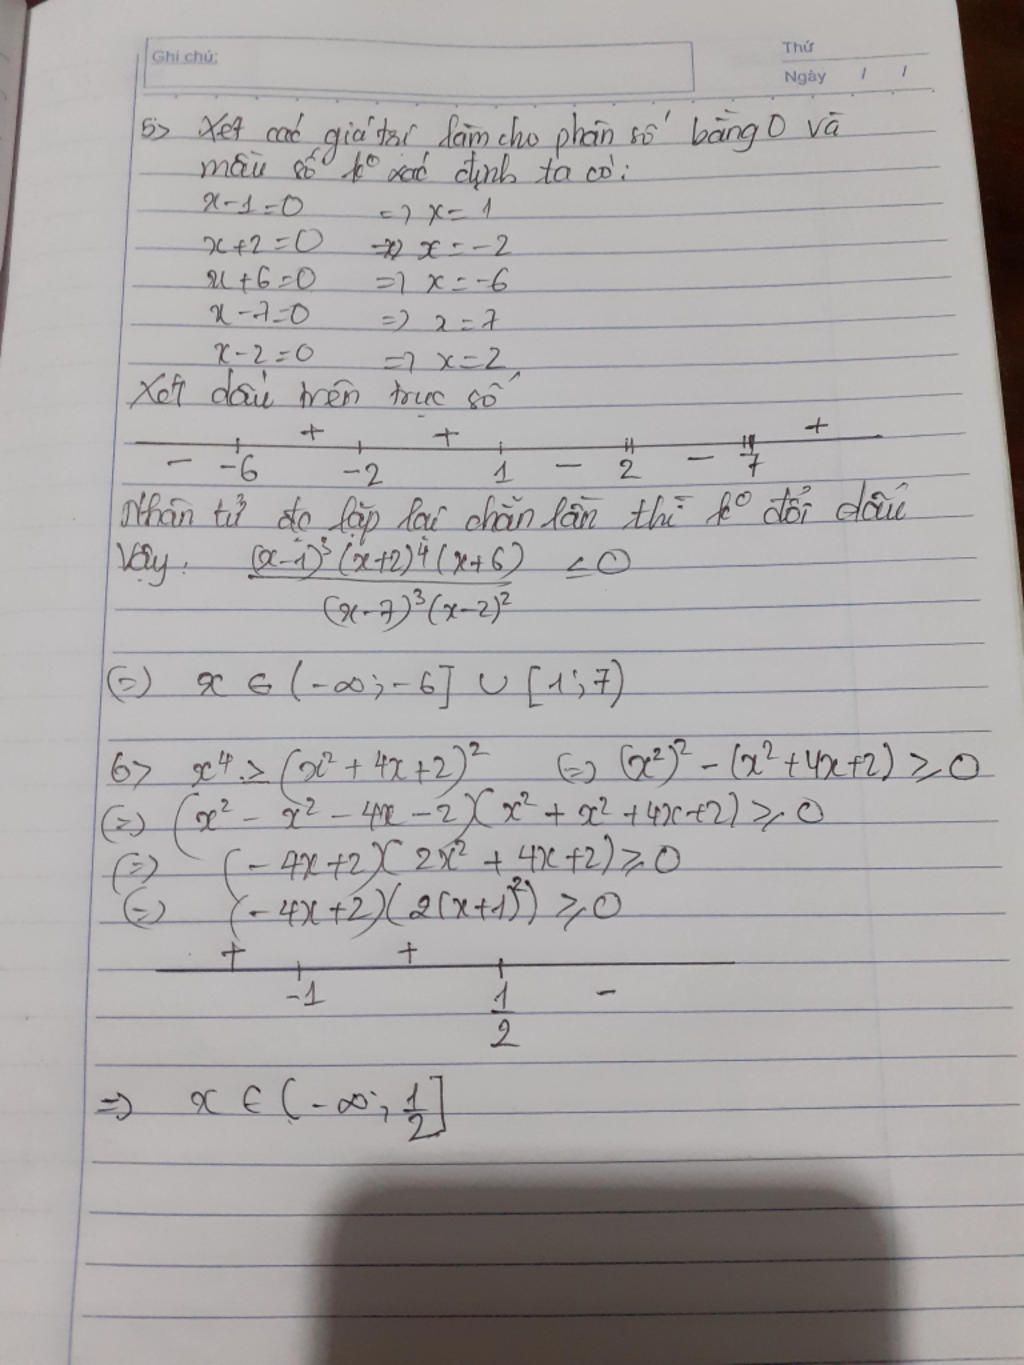 Ghi chú:
Thứ
Ngày / /
5> Xét các giá trị làm cho phân số bằng 0 và
mẫu số k° xác định ta có:
x-1=0 => x=1
x+2=0 => x=-2
x+6=0 => x=-6
x-7=0 => x=7
x-2=0 => x=2
Xét dấu trên trục số
+ + +
- -6 -2 1 - 2 - 7
Nhân tử đc lặp lại chẵn lần thì k° đổi dấu
Vậy: (x-1)³(x+2)⁴(x+6) ≤0
(x-7)³(x-2)²
(=) x ∈ (-∞;-6] ∪ [1;7)
6> x⁴ ≥ (x²+4x+2)² (=) (x²)² - (x²+4x+2) ≥0
(=) (x² - x² - 4x - 2)(x² + x² + 4x+2) ≥0
(=) (-4x+2)(2x² + 4x+2) ≥0
(=) (-4x+2)(2(x+1)²) ≥0
+ +
-1 1/2 -
=> x ∈ (-∞; 1/2]